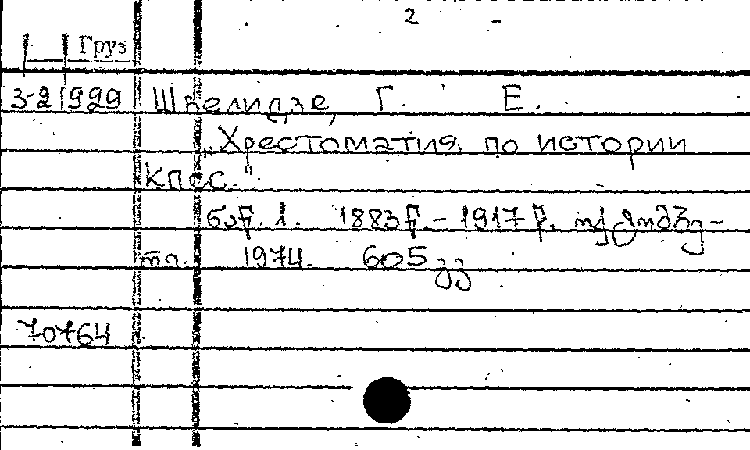 2 -
Груз
3-2 1929 Швелидзе, Г. Е.
„Хрестоматия по истории
КПСС."
ნაწ. 1. 1883წ. – 1917წ. ოქტომბე-
რი. 1974. 605გვ
70764